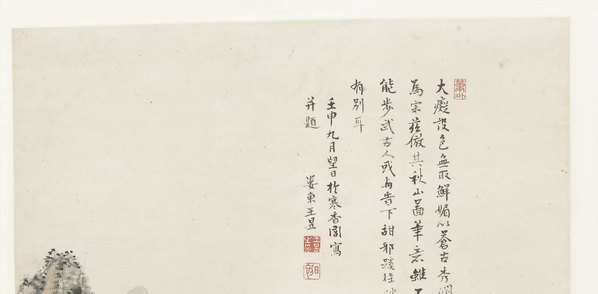 大癡設色無取鮮媚以蒼古秀潤
為宗茲倣其秋山圖筆意雖不
能步武古人或与下甜邪蹊徑
有別耳
壬申九月望日於寒香閣寫
并題 婁東王昱